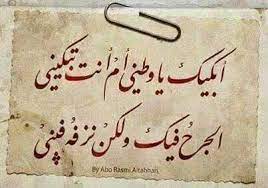 أبكيك يا وطني أم أنت تبكيني
الجرح فيك ولكن نزفه فيني
By Abo Rasmi Altahhan